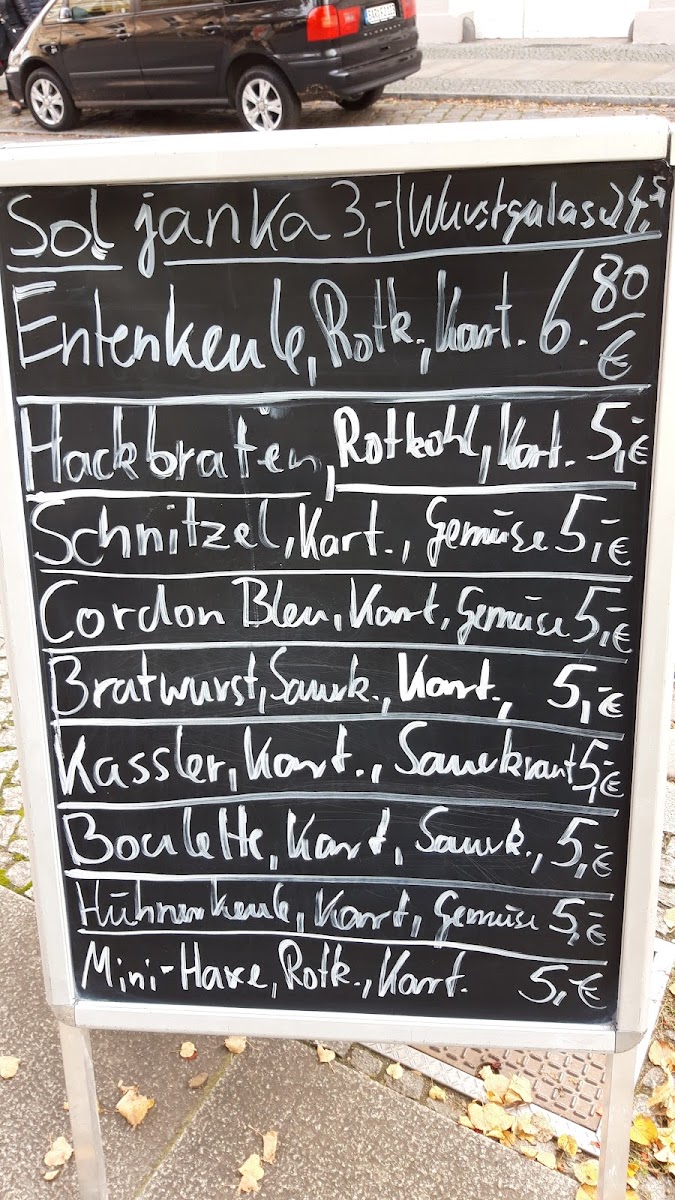 Soljanka 3,- | Wurstgulasch 4,5
Entenkeule, Rotk., Kart. 6.80 €
Hackbraten, Rotkohl, Kart. 5,- €
Schnitzel, Kart., Gemüse 5,- €
Cordon Bleu, Kart, Gemüse 5,- €
Bratwurst, Sauerk., Kart., 5,- €
Kassler, Kart., Sauerkraut 5,- €
Boulette, Kart, Sauerk., 5,- €
Hühnerkeule, Kart, Gemüse 5,- €
Mini-Haxe, Rotk., Kart. 5,- €